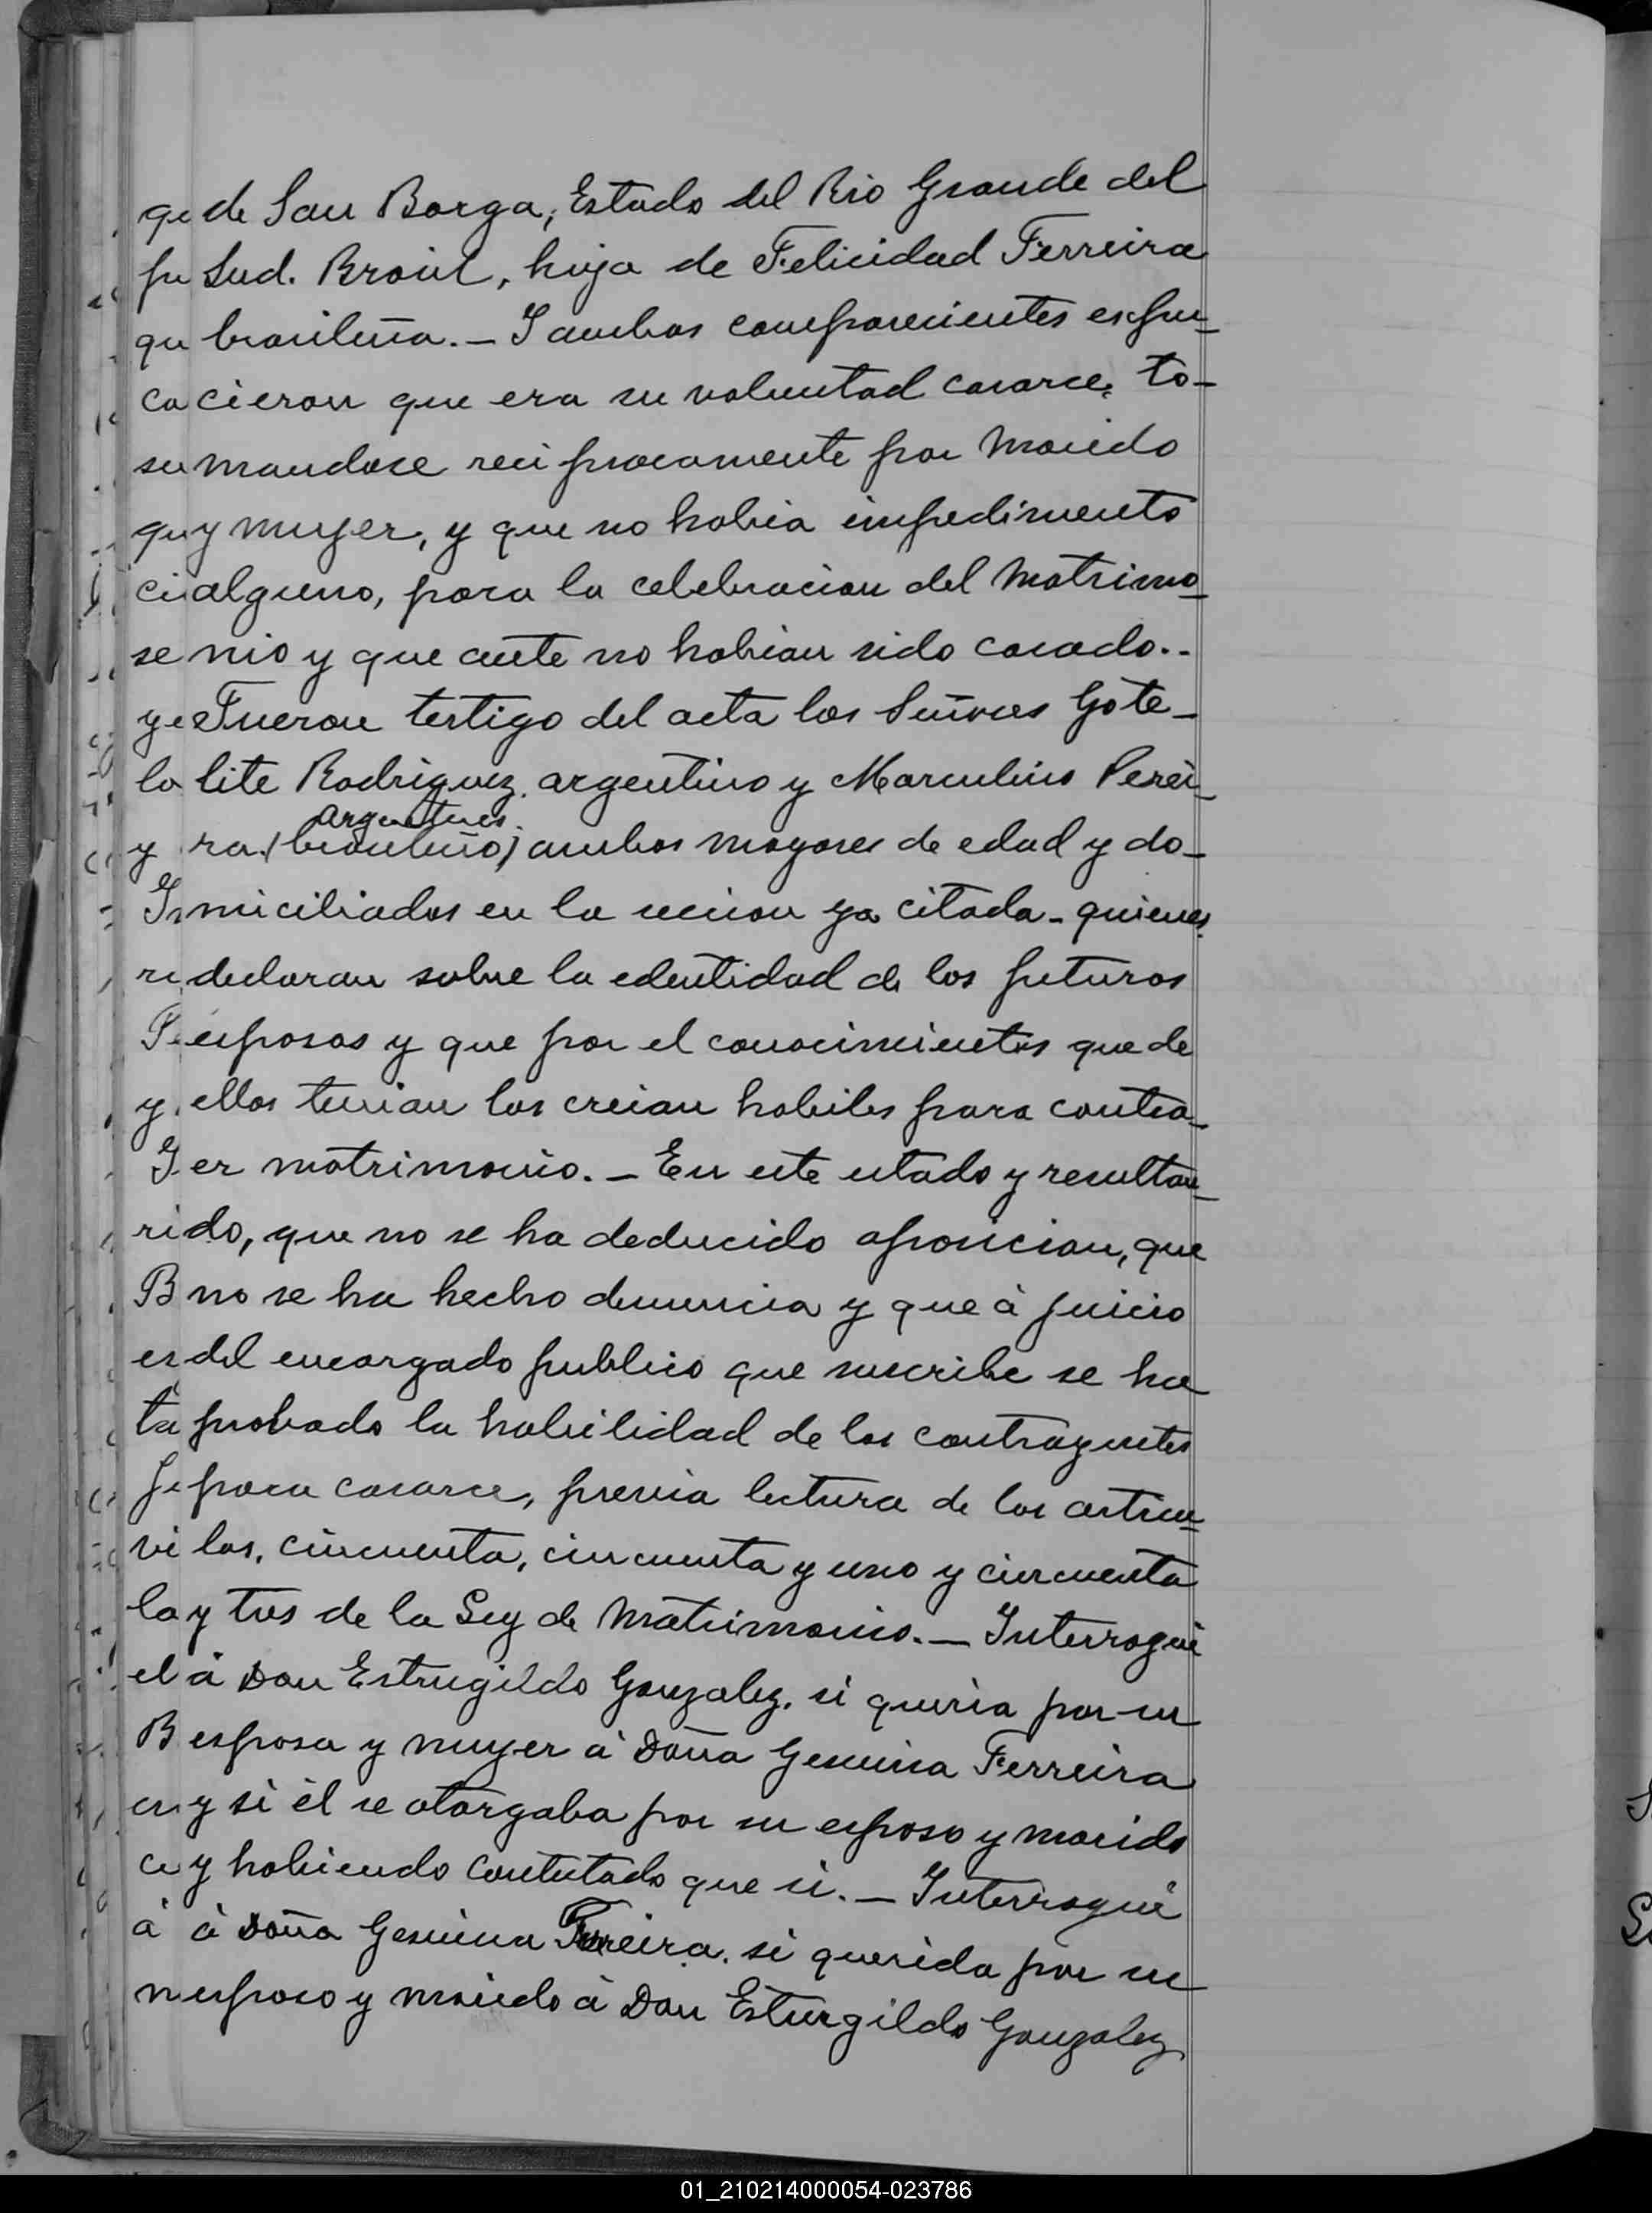 de San Borga, Estado del Rio Grande del
Sud. Brasil, hija de Felicidad Ferreira
brasileña. — I ambos comparecientes espu-
cieron que era su voluntad casarce, to-
mandose reciprocamente por marido
y muger, y que no habia impedimento
alguno, para la celebracion del Matrimo-
nio y que ante no habian sido casado..
Fueron testigo del acta los Señores Gote-
lite Rodriguez. argentino y Marculino Perei-
argentinos
ra. (brasileño) ambos mayores de edad y do-
miciliados en la secion ya citada - quienes
declaran sobre la edentidad de los futuros
esposos y que por el conocimientos que de
ellos tenian los creian habiles para contra-
er matrimonio. — En este estado y resultan-
do, que no se ha deducido oposicion, que
no se ha hecho denuncia y que à juicio
del encargado publico que suscribe se ha
probado la habilidad de los contrayentes
para casarce, previa lectura de los articu-
los, cincuenta, cincuenta y uno y cincuenta
y tres de la Ley de Matrimonio. — Interrogué
à Don Estrugildo Gonzalez. si queria por su
esposa y muyer à Doña Gesuina Ferreira
y si él se otorgaba por su esposo y marido
y habiendo contestado que si. — Interrogué
à Doña Gesuina Ferreira. si querida por su
esposo y marido à Don Esturgildo Gonzalez
01_210214000054-023786